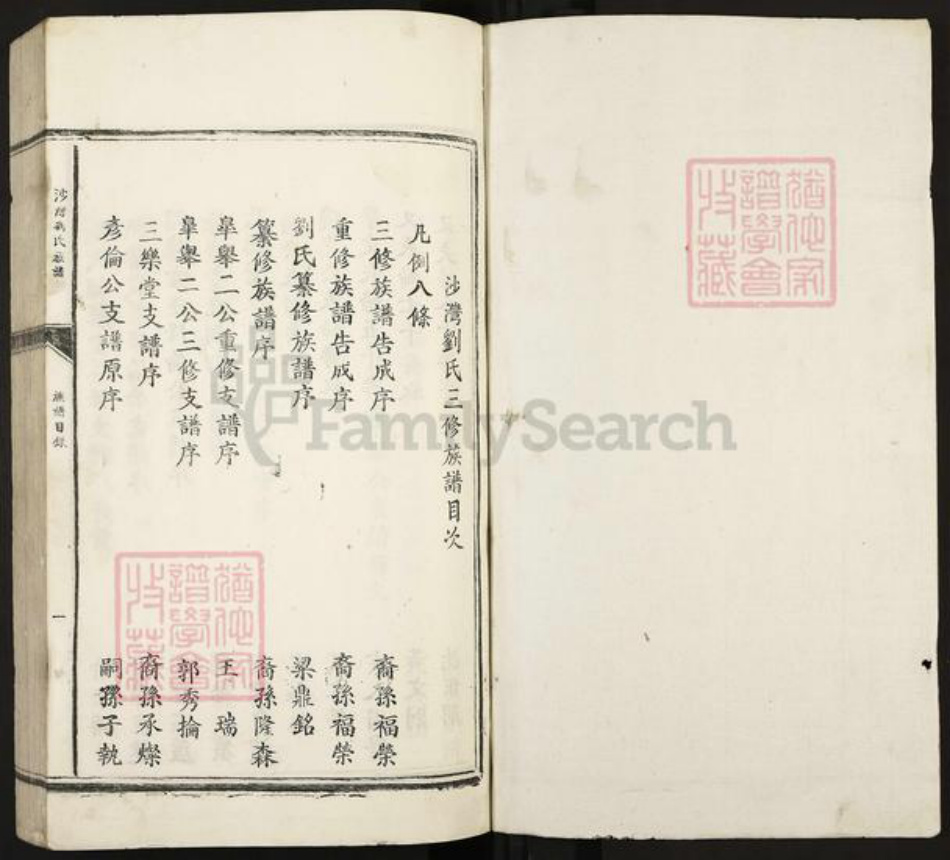 沙灣劉氏三修族譜目次
凡例八條
三修族譜告成序 裔孫福榮
重修族譜告成序 裔孫福榮
劉氏纂修族譜序 梁鼎銘
纂修族譜序 裔孫隆森
臯舉二公重修支譜序 王瑞
臯舉二公三修支譜序 郭秀掄
三樂堂支譜序 裔孫承燦
彥倫公支譜原序 嗣孫子執
沙灣劉氏族譜
族譜目錄
一
FamilySearch